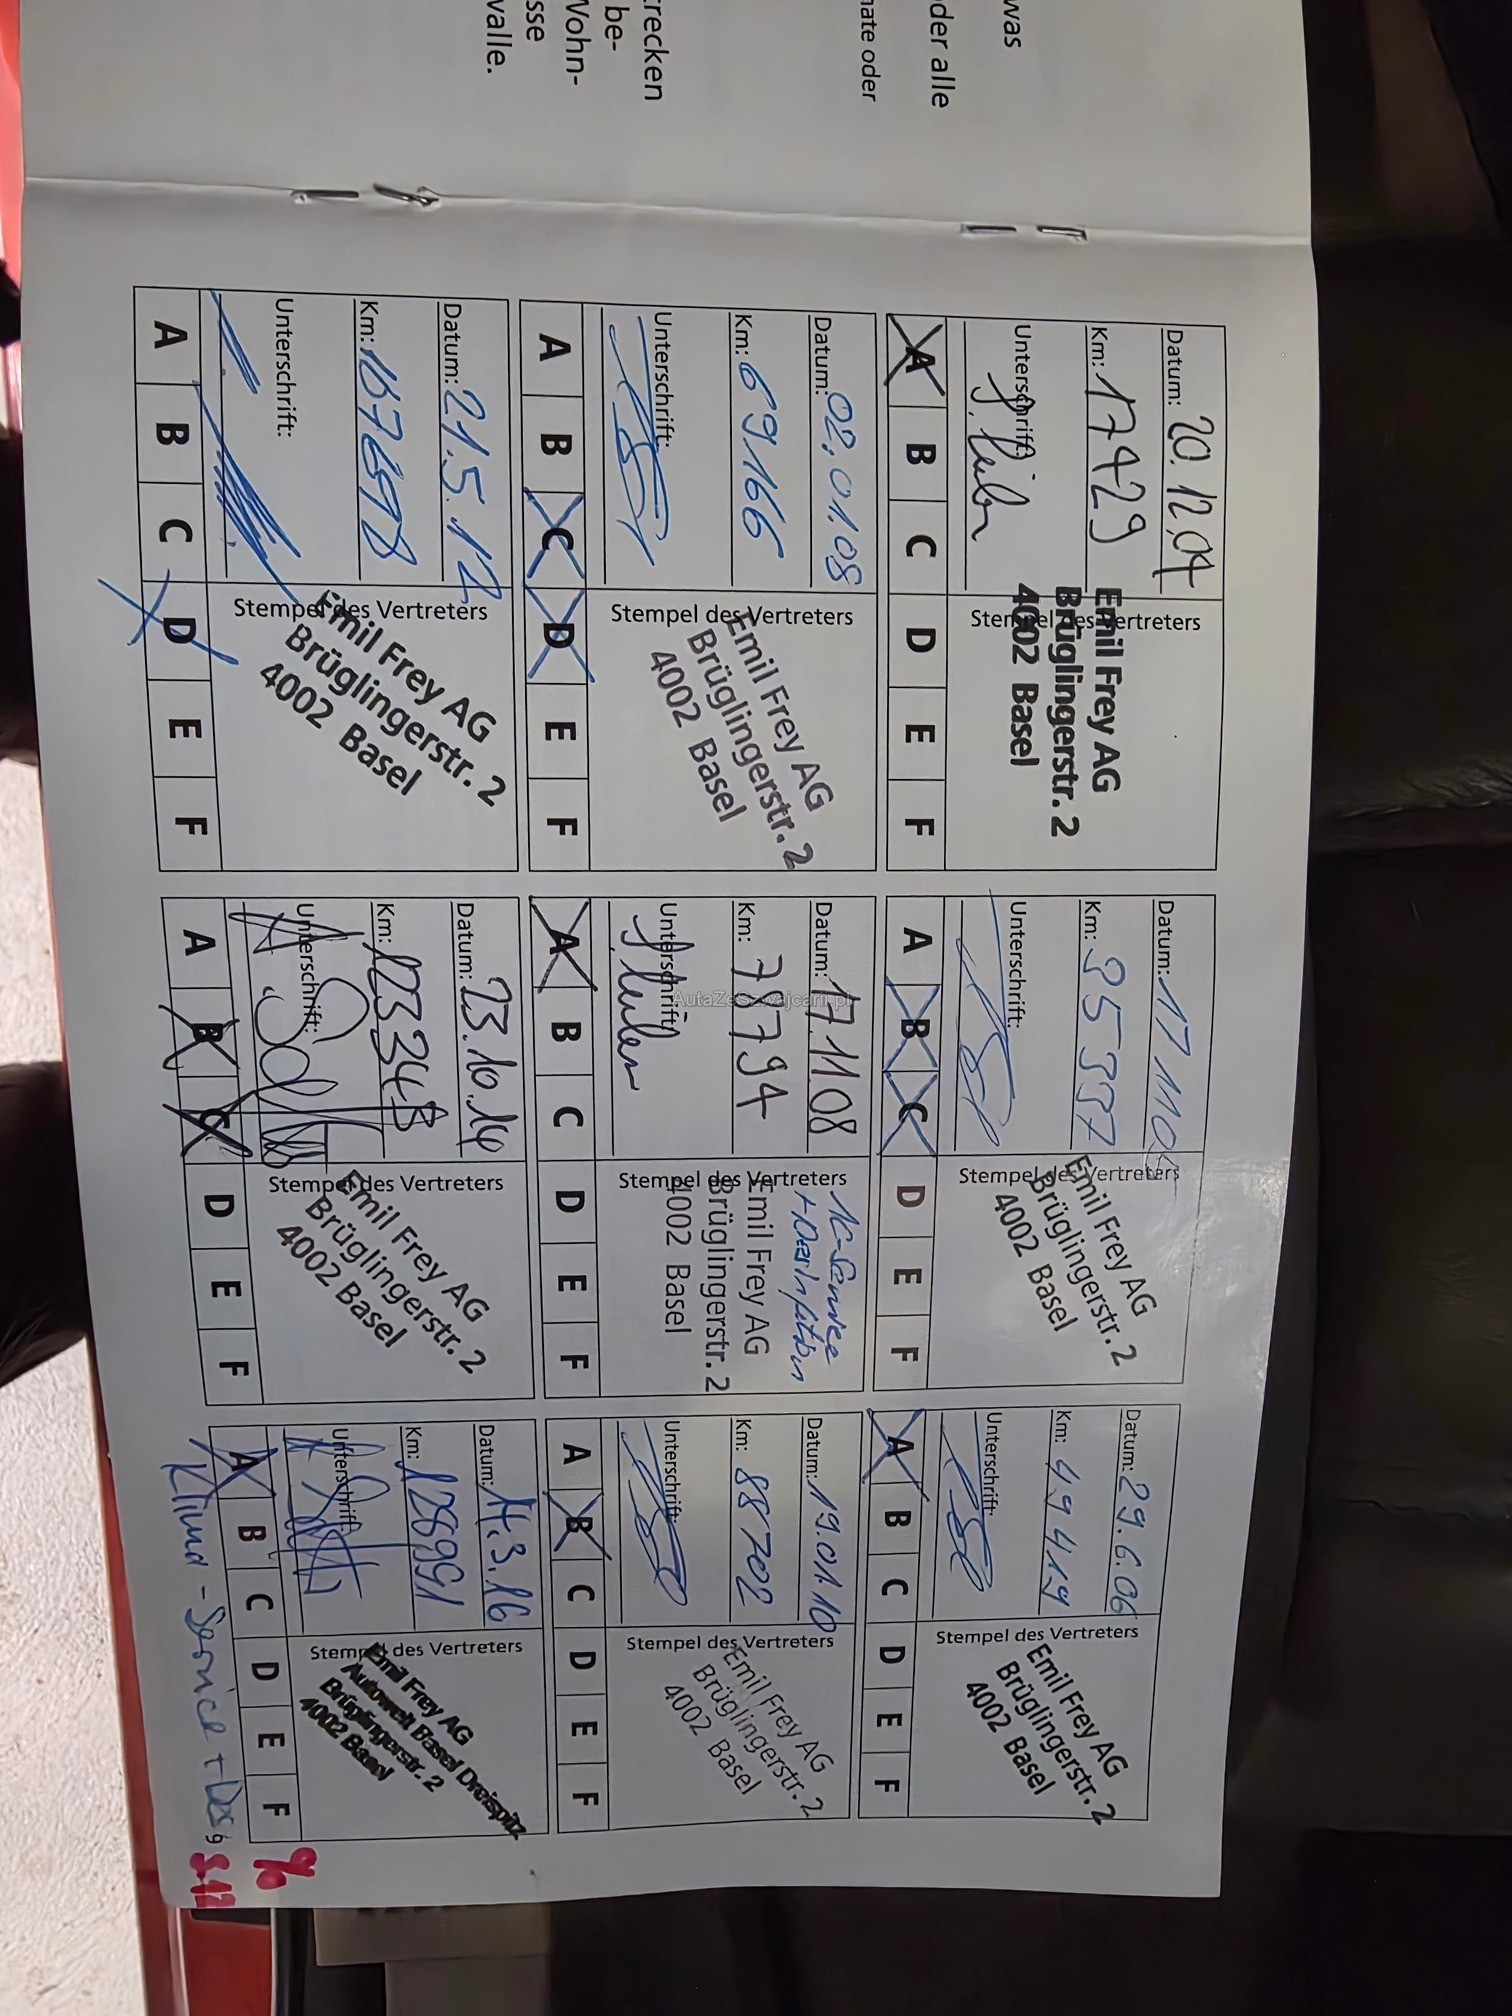 was
oder alle
nate oder
recken
be-
Wohn-
sse
valle.
Datum: 20.12.04
Km: 17429
Unterschrift:
Stempel des Vertreters
Emil Frey AG
Brüglingerstr. 2
4002 Basel
A B C D E F
Datum: 17.11.05
Km: 35337
Unterschrift:
Stempel des Vertreters
Emil Frey AG
Brüglingerstr. 2
4002 Basel
A B C D E F
Datum: 29.6.06
Km: 49419
Unterschrift:
Stempel des Vertreters
Emil Frey AG
Brüglingerstr. 2
4002 Basel
A B C D E F
Datum: 02.01.08
Km: 69166
Unterschrift:
Stempel des Vertreters
Emil Frey AG
Brüglingerstr. 2
4002 Basel
A B C D E F
Datum: 17.11.08
Km: 78794
Unterschrift:
Stempel des Vertreters
+ Desinfektion
Emil Frey AG
Brüglingerstr. 2
4002 Basel
A B C D E F
Datum: 19.01.10
Km: 88702
Unterschrift:
Stempel des Vertreters
Emil Frey AG
Brüglingerstr. 2
4002 Basel
A B C D E F
Datum: 21.5.12
Km:
Unterschrift:
Stempel des Vertreters
Emil Frey AG
Brüglingerstr. 2
4002 Basel
A B C D E F
Datum: 23.10.14
Km: 123348
Unterschrift:
Stempel des Vertreters
Emil Frey AG
Brüglingerstr. 2
4002 Basel
A B C D E F
Datum: 14.3.16
Km: 128991
Unterschrift:
Stempel des Vertreters
Emil Frey AG
Autowelt Basel Dreispitz
Brüglingerstr. 2
4002 Basel
A B C D E F
Klima-Service + Des
9
AutaZeSzwajcarii.pl